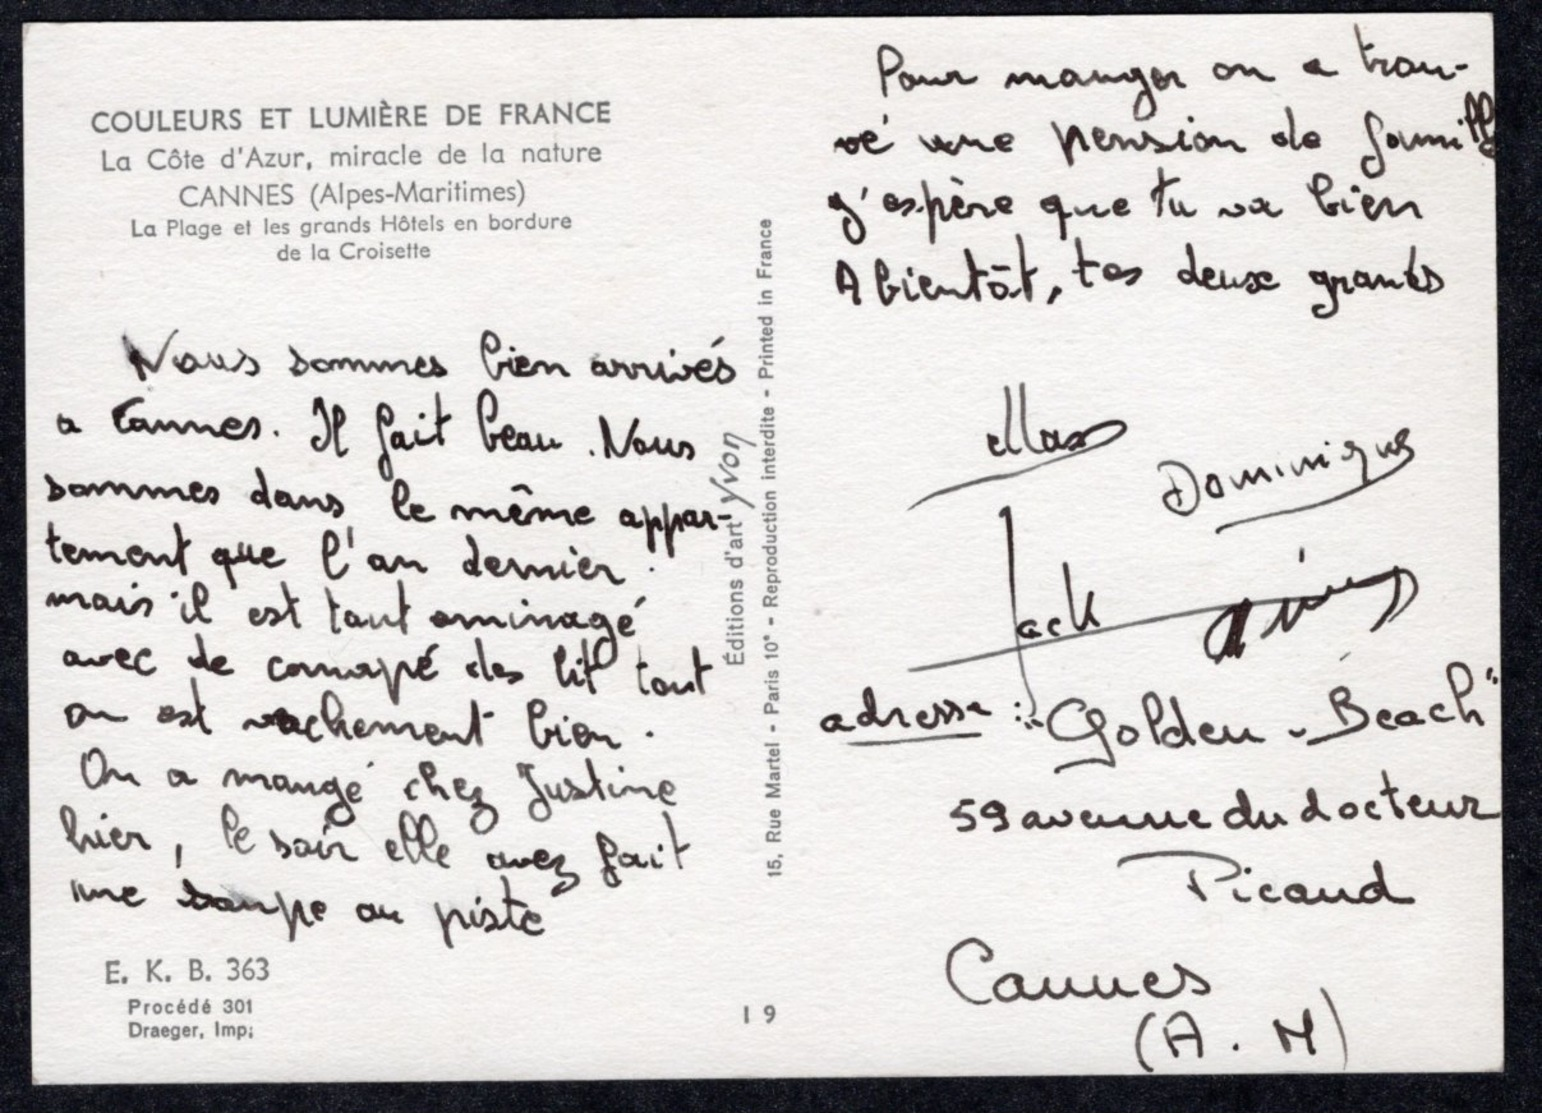 COULEURS ET LUMIÈRE DE FRANCE
La Côte d'Azur, miracle de la nature
CANNES (Alpes-Maritimes)
La Plage et les grands Hôtels en bordure
de la Croisette
Nous sommes bien arrivés
a Cannes. Il fait beau. Nous
sommes dans le même appar-
tement que l'an dernier.
mais il est tout aminagé
avec de canapé des lit tout
on est vachement bien.
On a mangé chez Justine
hier, le soir elle avez fait
une soupe au piste
E. K. B. 363
Procédé 301
Draeger, Imp;
Éditions d'art Yvon
15, Rue Martel - Paris 10e - Reproduction interdite - Printed in France
I 9
Pour manger on a trou-
vé une pension de famill
g'espère que tu va bien
A bientôt, tes deux grands
Max
Dominique
Jack
adresse : "Golden - Beach"
59 avenue du docteur
Picaud
Cannes
(A. M)